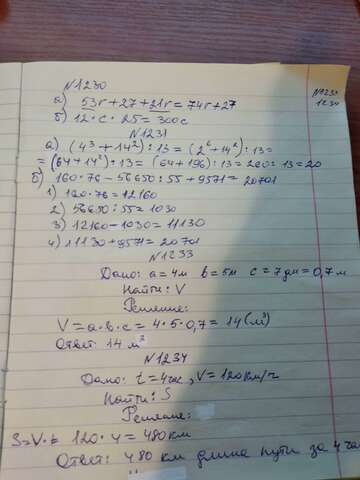 N1230
N1231
1234
а) 53r + 27 + 21r = 74r + 27
б) 12 · c · 25 = 300c
N1231
а) (4³ + 14²) : 13 = (2⁶ + 14²) : 13 =
= (64 + 14²) : 13 = (64 + 196) : 13 = 260 : 13 = 20
б) 160 · 76 – 56650 : 55 + 9571 = 20701
1) 160 · 76 = 12160
2) 56650 : 55 = 1030
3) 12160 – 1030 = 11130
4) 11130 + 9571 = 20701
N1233
Дано: a = 4м b = 5м c = 7дм = 0,7м
Найти: V
Решение:
V = a · b · c = 4 · 5 · 0,7 = 14 (м³)
Ответ 14 м³
N1234
Дано: t = 4час, V = 120км/г
Найти: S
Решение:
S = V · t 120 · 4 = 480км
Ответ: 480 км длина пути за 4 часа